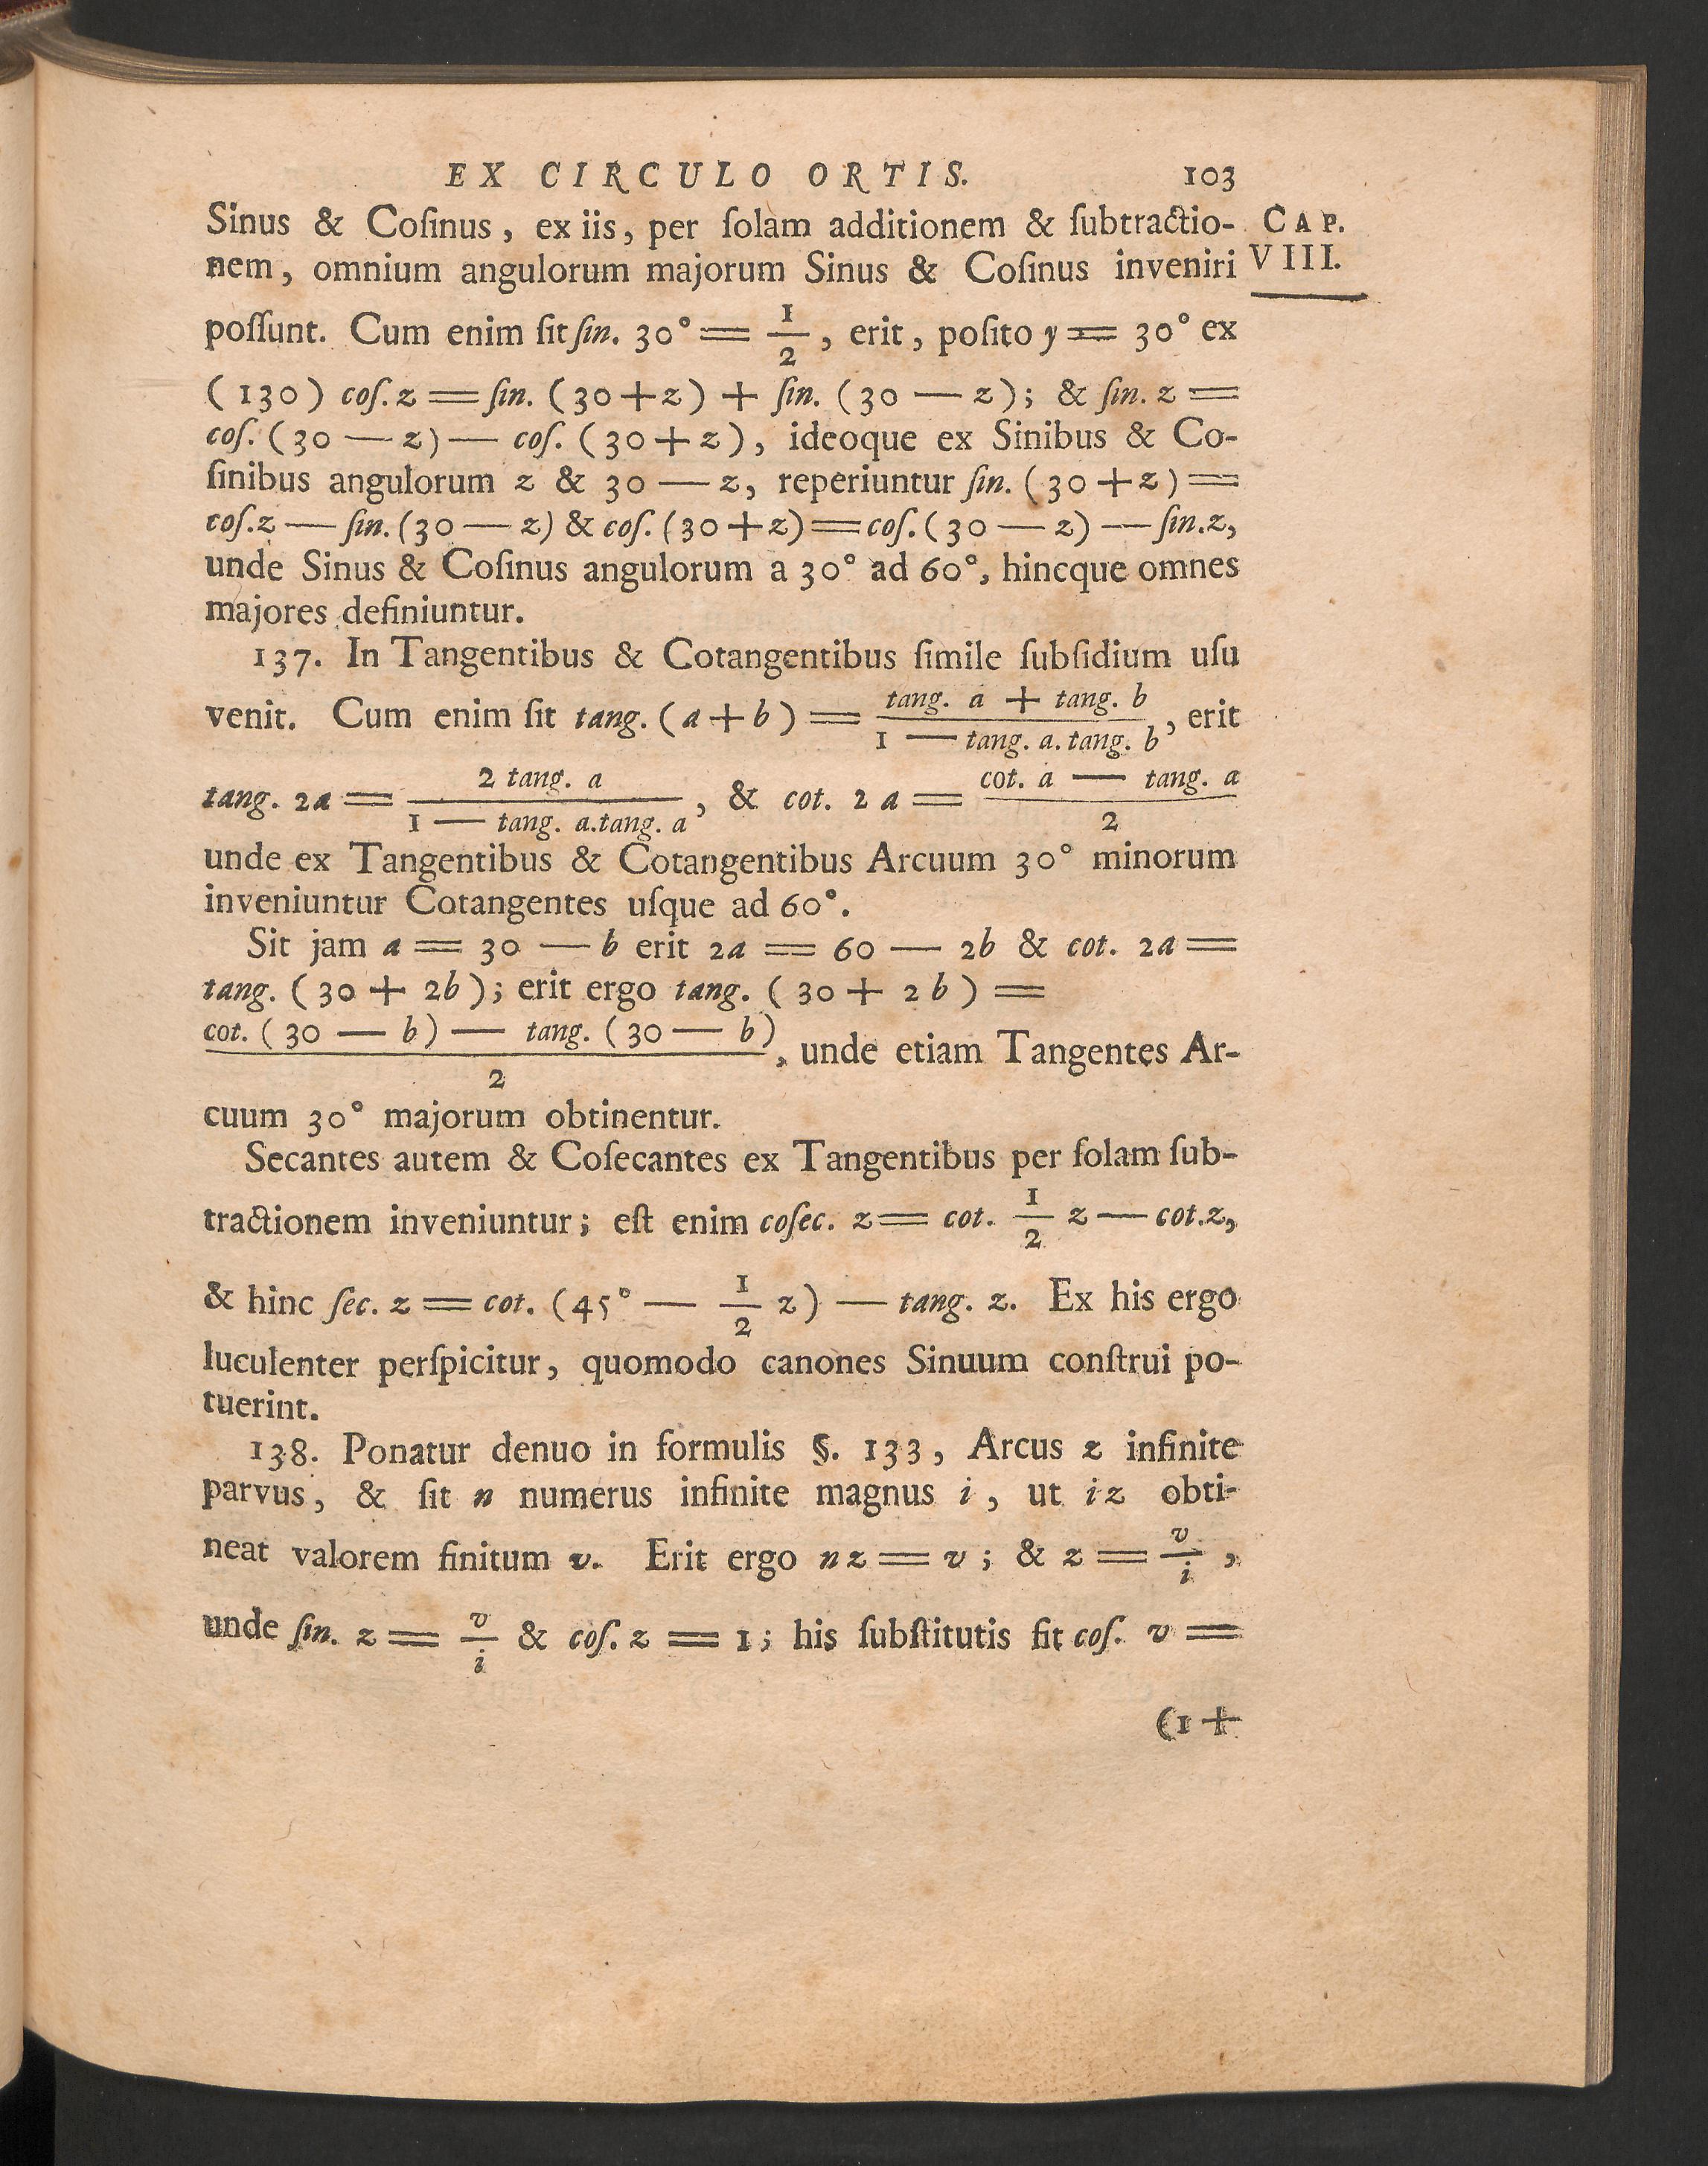 EX CIRCULO ORTIS. 103
Sinus & Coſinus, ex iis, per ſolam additionem & ſubtractio- CAP.
nem, omnium angulorum majorum Sinus & Coſinus inveniri VIII.
poſſunt. Cum enim ſit ſin. 30° = 1/2, erit, poſito y = 30° ex
(130) coſ. z = ſin. (30 + z) + ſin. (30 — z); & ſin. z =
coſ. (30 — z) — coſ. (30 + z), ideoque ex Sinibus & Co-
ſinibus angulorum z & 30 — z, reperiuntur ſin. (30 + z) =
coſ. z — ſin. (30 — z) & coſ. (30 + z) = coſ. (30 — z) — ſin. z,
unde Sinus & Coſinus angulorum a 30° ad 60°, hincque omnes
majores definiuntur.
137. In Tangentibus & Cotangentibus ſimile ſubſidium uſu
venit. Cum enim ſit tang. (a + b) = (tang. a + tang. b)/(1 — tang. a. tang. b), erit
tang. 2a = (2 tang. a)/(1 — tang. a. tang. a), & cot. 2a = (cot. a — tang. a)/2
unde ex Tangentibus & Cotangentibus Arcuum 30° minorum
inveniuntur Cotangentes uſque ad 60°.
Sit jam a = 30 — b erit 2a = 60 — 2b & cot. 2a =
tang. (30 + 2b); erit ergo tang. (30 + 2b) =
(cot. (30 — b) — tang. (30 — b))/2, unde etiam Tangentes Ar-
cuum 30° majorum obtinentur.
Secantes autem & Coſecantes ex Tangentibus per ſolam ſub-
tractionem inveniuntur; eſt enim coſec. z = cot. 1/2 z — cot. z,
& hinc ſec. z = cot. (45° — 1/2 z) — tang. z. Ex his ergo
luculenter perſpicitur, quomodo canones Sinuum conſtrui po-
tuerint.
138. Ponatur denuo in formulis §. 133, Arcus z infinite
parvus, & ſit n numerus infinite magnus i, ut iz obti-
neat valorem finitum v. Erit ergo nz = v; & z = v/i,
unde ſin. z = v/i & coſ. z = 1; his ſubſtitutis fit coſ. v =
(1 +